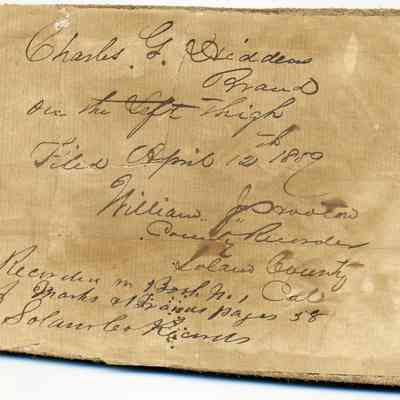 Charles G. Hiddens
Brand
on the Left Thigh
Filed April 12th 1889
William J
County Recorder
Solano County
Cal
Recorded in Book No. 1
of Marks & Brands pages 58
Solano Co Records